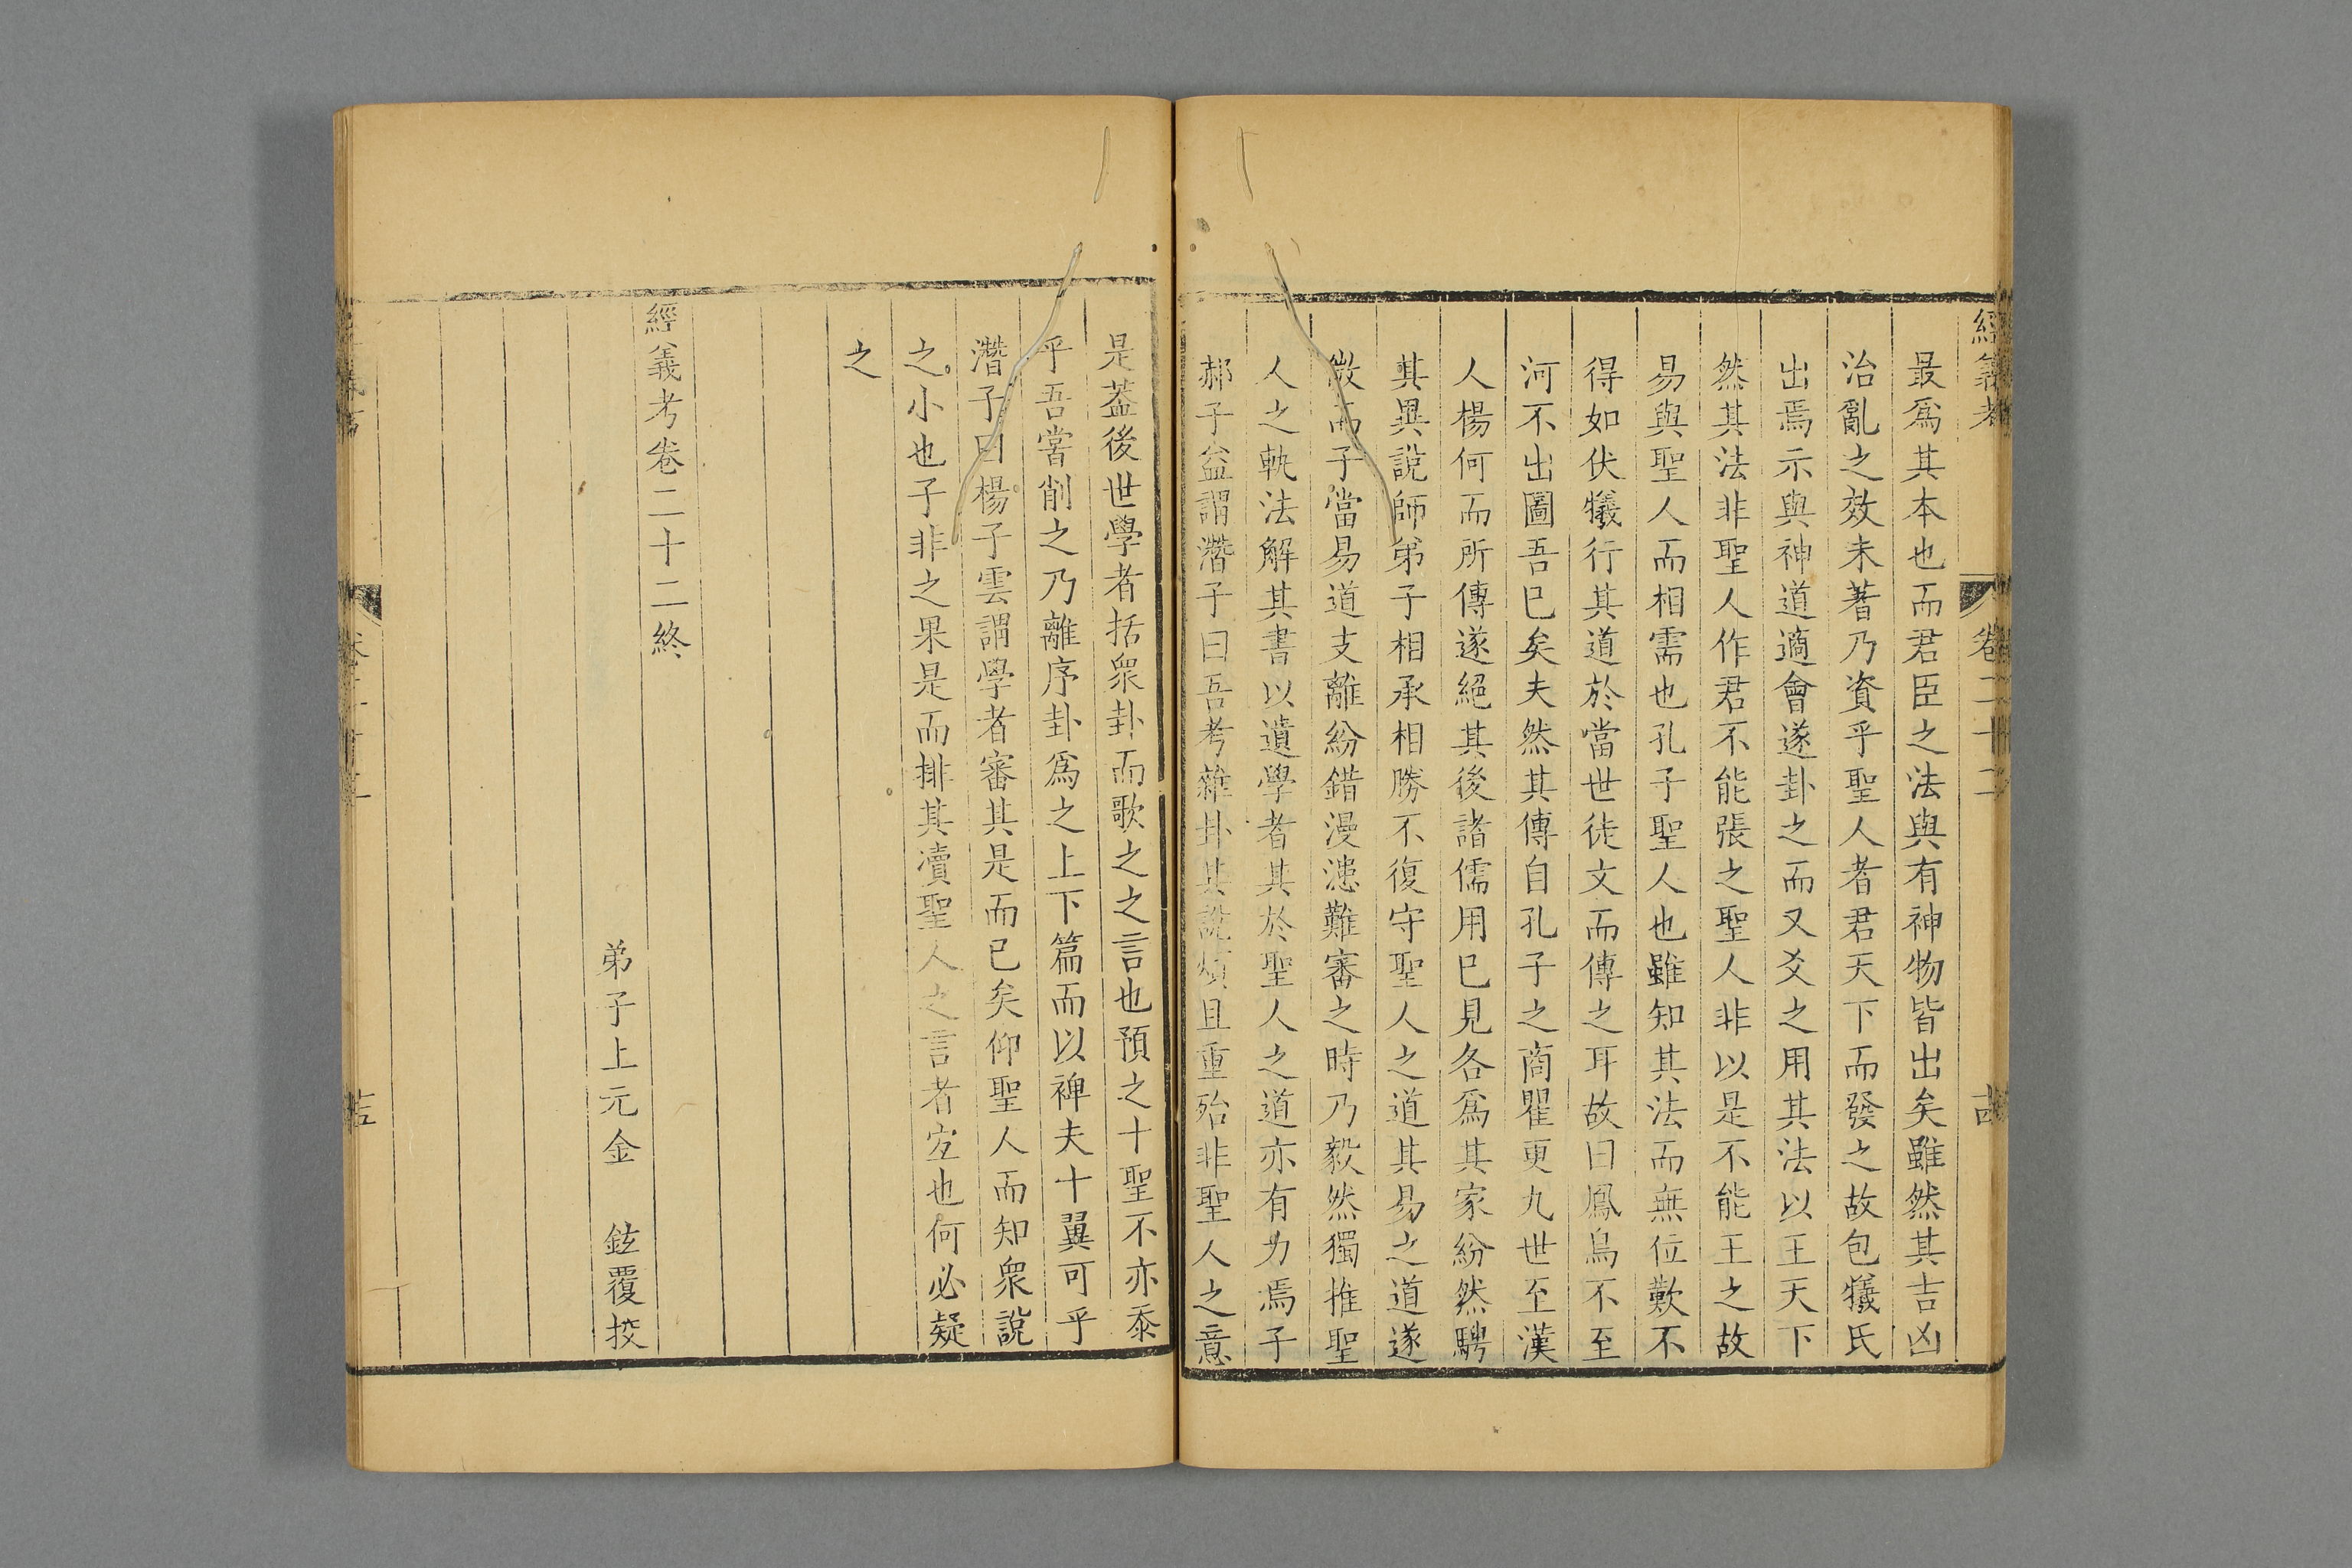 經義考 卷二十二
最爲其本也而君臣之法與有神物皆出矣雖然其吉凶
治亂之效未著乃資乎聖人者君天下而發之故包犠氏
出焉示與神道適會遂卦之而又爻之用其法以王天下
然其法非聖人作君不能張之聖人非以是不能王之故
易與聖人而相需也孔子聖人也雖知其法而無位歎不
得如伏犠行其道於當世徒文而傳之耳故曰鳳鳥不至
河不出圖吾已矣夫然其傳自孔子之商瞿更九世至漢
人楊何而所傳遂絕其後諸儒用已見各爲其家紛然騁
其異說師弟子相承相勝不復守聖人之道其易之道遂
微而子當易道支離紛錯漫漶難審之時乃毅然獨推聖
人之軌法解其書以遺學者其於聖人之道亦有力焉子
郝子益謂潛子曰吾考雜卦其說煩且重殆非聖人之意
是葢後世學者括衆卦而歌之之言也預之十聖不亦忝
乎吾嘗削之乃離序卦爲之上下篇而以裨夫十翼可乎
潛子曰楊子雲謂學者審其是而已矣仰聖人而知衆說
之小也子非之果是而排其瀆聖人之言者宐也何必疑
之
經義考卷二十二終
弟子上元金 鉉覆挍